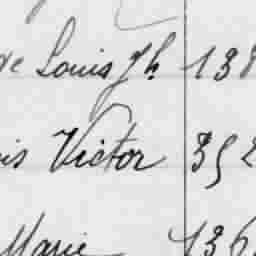 Louis Jh 138
Victor 352
Marie 136